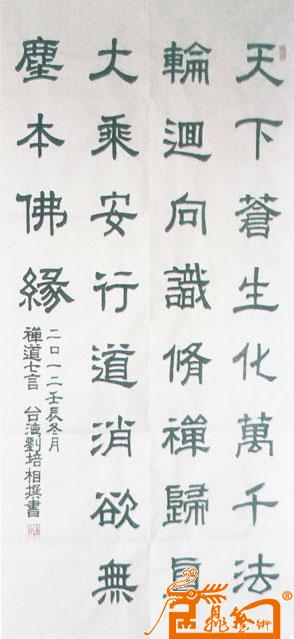 天下蒼生化萬千法
輪迴向識脩禪歸真
大乘安行道消欲無
塵本佛緣
二〇一二壬辰冬月
禪道七言 台灣劉培相撰書
藝術